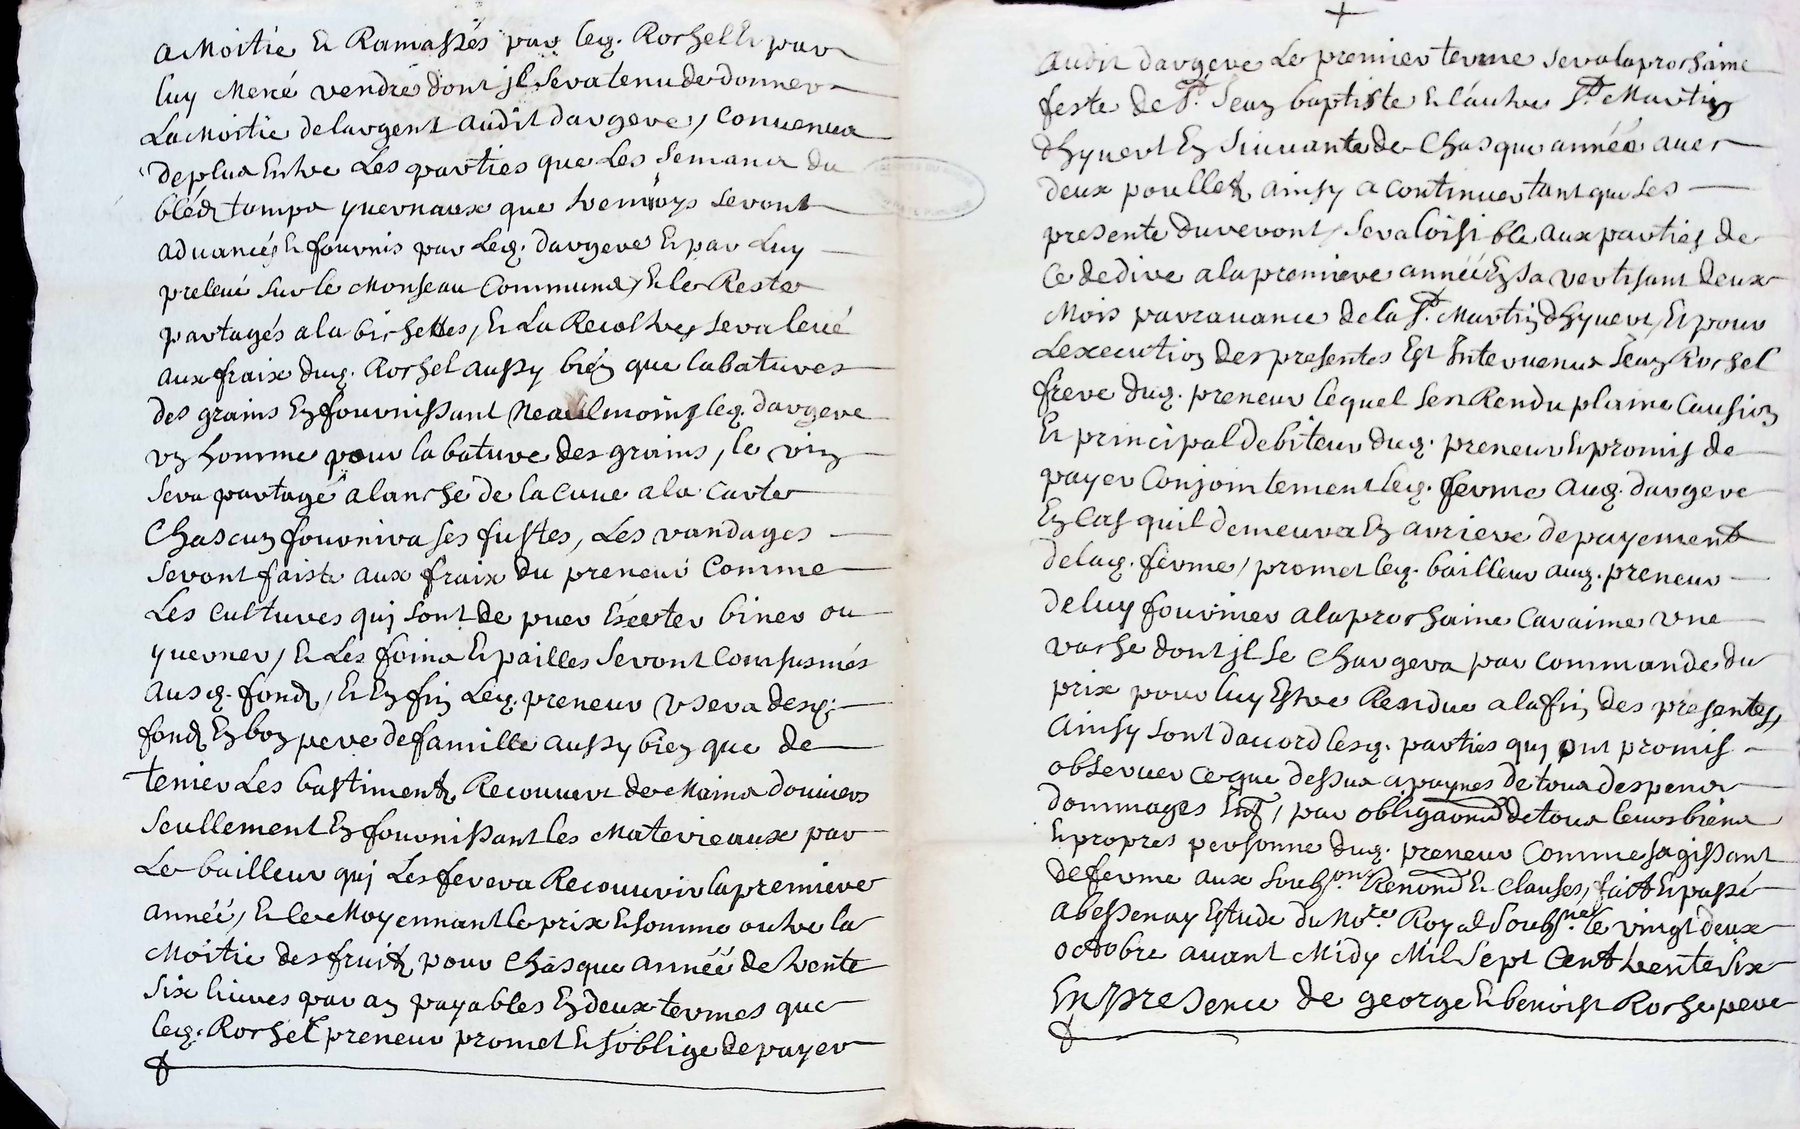 a Moitié Et Ramassés par leq. Rochel Et par
luy Mené vendre dont jl sera tenu de donner
La Moitié de largent audit dargere, Conuenua
de plus Entre Les parties que Les semance du
bléd tampo yuernaux que tremoys seront
aduancés Et fournis par Leq. dargere Et par Luy
preleué sur le Monseau Commund, Et le Reste
partagés a la bichettes, Et La Recolte sera leué
aux fraix duq. Rochel aussy bién que la batures
des grains En fournissant Neaulmoins leq. dargere
vn homme pour la bature des grains, le vin
sera partagé a lanche de la Cuue a la Carte
Chascun fournira ses fustes, Les vandages
seront faiste aux fraix du preneur Comme
Les Cultures qui sont de puer biner ou
yuerner, Et Les foins Et pailles seront Consusmés
ausq. fond, Et En fin Leq. preneur Vsera desq.
fond En bon pere de famille aussy bien que de
tenier Les bastiment Recouuert de Mains douuiers
seullement En fournissant les Materieaux par
Le bailleur quj Les ferera Recouurir la premiere
année, Et le Moyennant le prix Et somme outre la
Moitie des fruit pour Chasque année de trente
six liures par an payables En deux termes que
leq. Rochel preneur promet Et soblige de payer
audit dargere Le premier terme sera la prochaine
feste de St. Jean baptiste Et l'autre St. Martin
dhyuert En suiuante de Chasque année auec
deux poullet ainsy a Continuer tant que Les
presente dureront, sera loisible aux parties de
Ce dedire a la premiere année En sa vertisant deux
Mois par auance de la St. Martin dhyuert, Et pour
Lexecution des presentes Est Interuenus Jean Rochel
frere duq. preneur lequel sest Rendu plaine Caution
Et principal debiteur duq. preneur Et promis de
payer Conjointement leq. ferme auq. dargere
En Cas quil demeura En arriere de payement
de laq. ferme, promet leq. bailleur auq. preneur
de luy fourinier a la prochaine Caraime vne
vache dont jl se Chargera par Commande du
prix pour luy Estre Rendue a la fin des presentes,
Ainsy sont d'acord lesq. parties quj ont promis
obseruer ce que dessus a paynes de tous despens
dommages Int, par obligaond de tous leurs biens
Et propres personne duq. preneur Comme sagissant
de ferme aux Soubson. Renond Et Clauses, fait Et passé
a bessenay Estude du Nore. Royal Soubsne. le vingt deux
octobre auant Midy Mil Sept Cent trente six
En presence de george Et benoist Roche pere